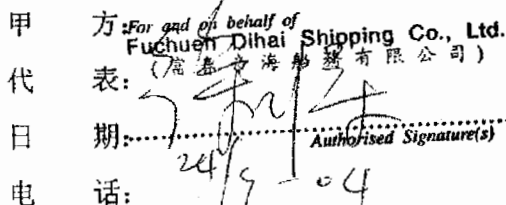 甲 方: For and on behalf of
Fuchuen Dihai Shipping Co., Ltd.
海船務有限公司)
代 表:
日 期: Authorised Signature(s)
24/9-04
电 话: